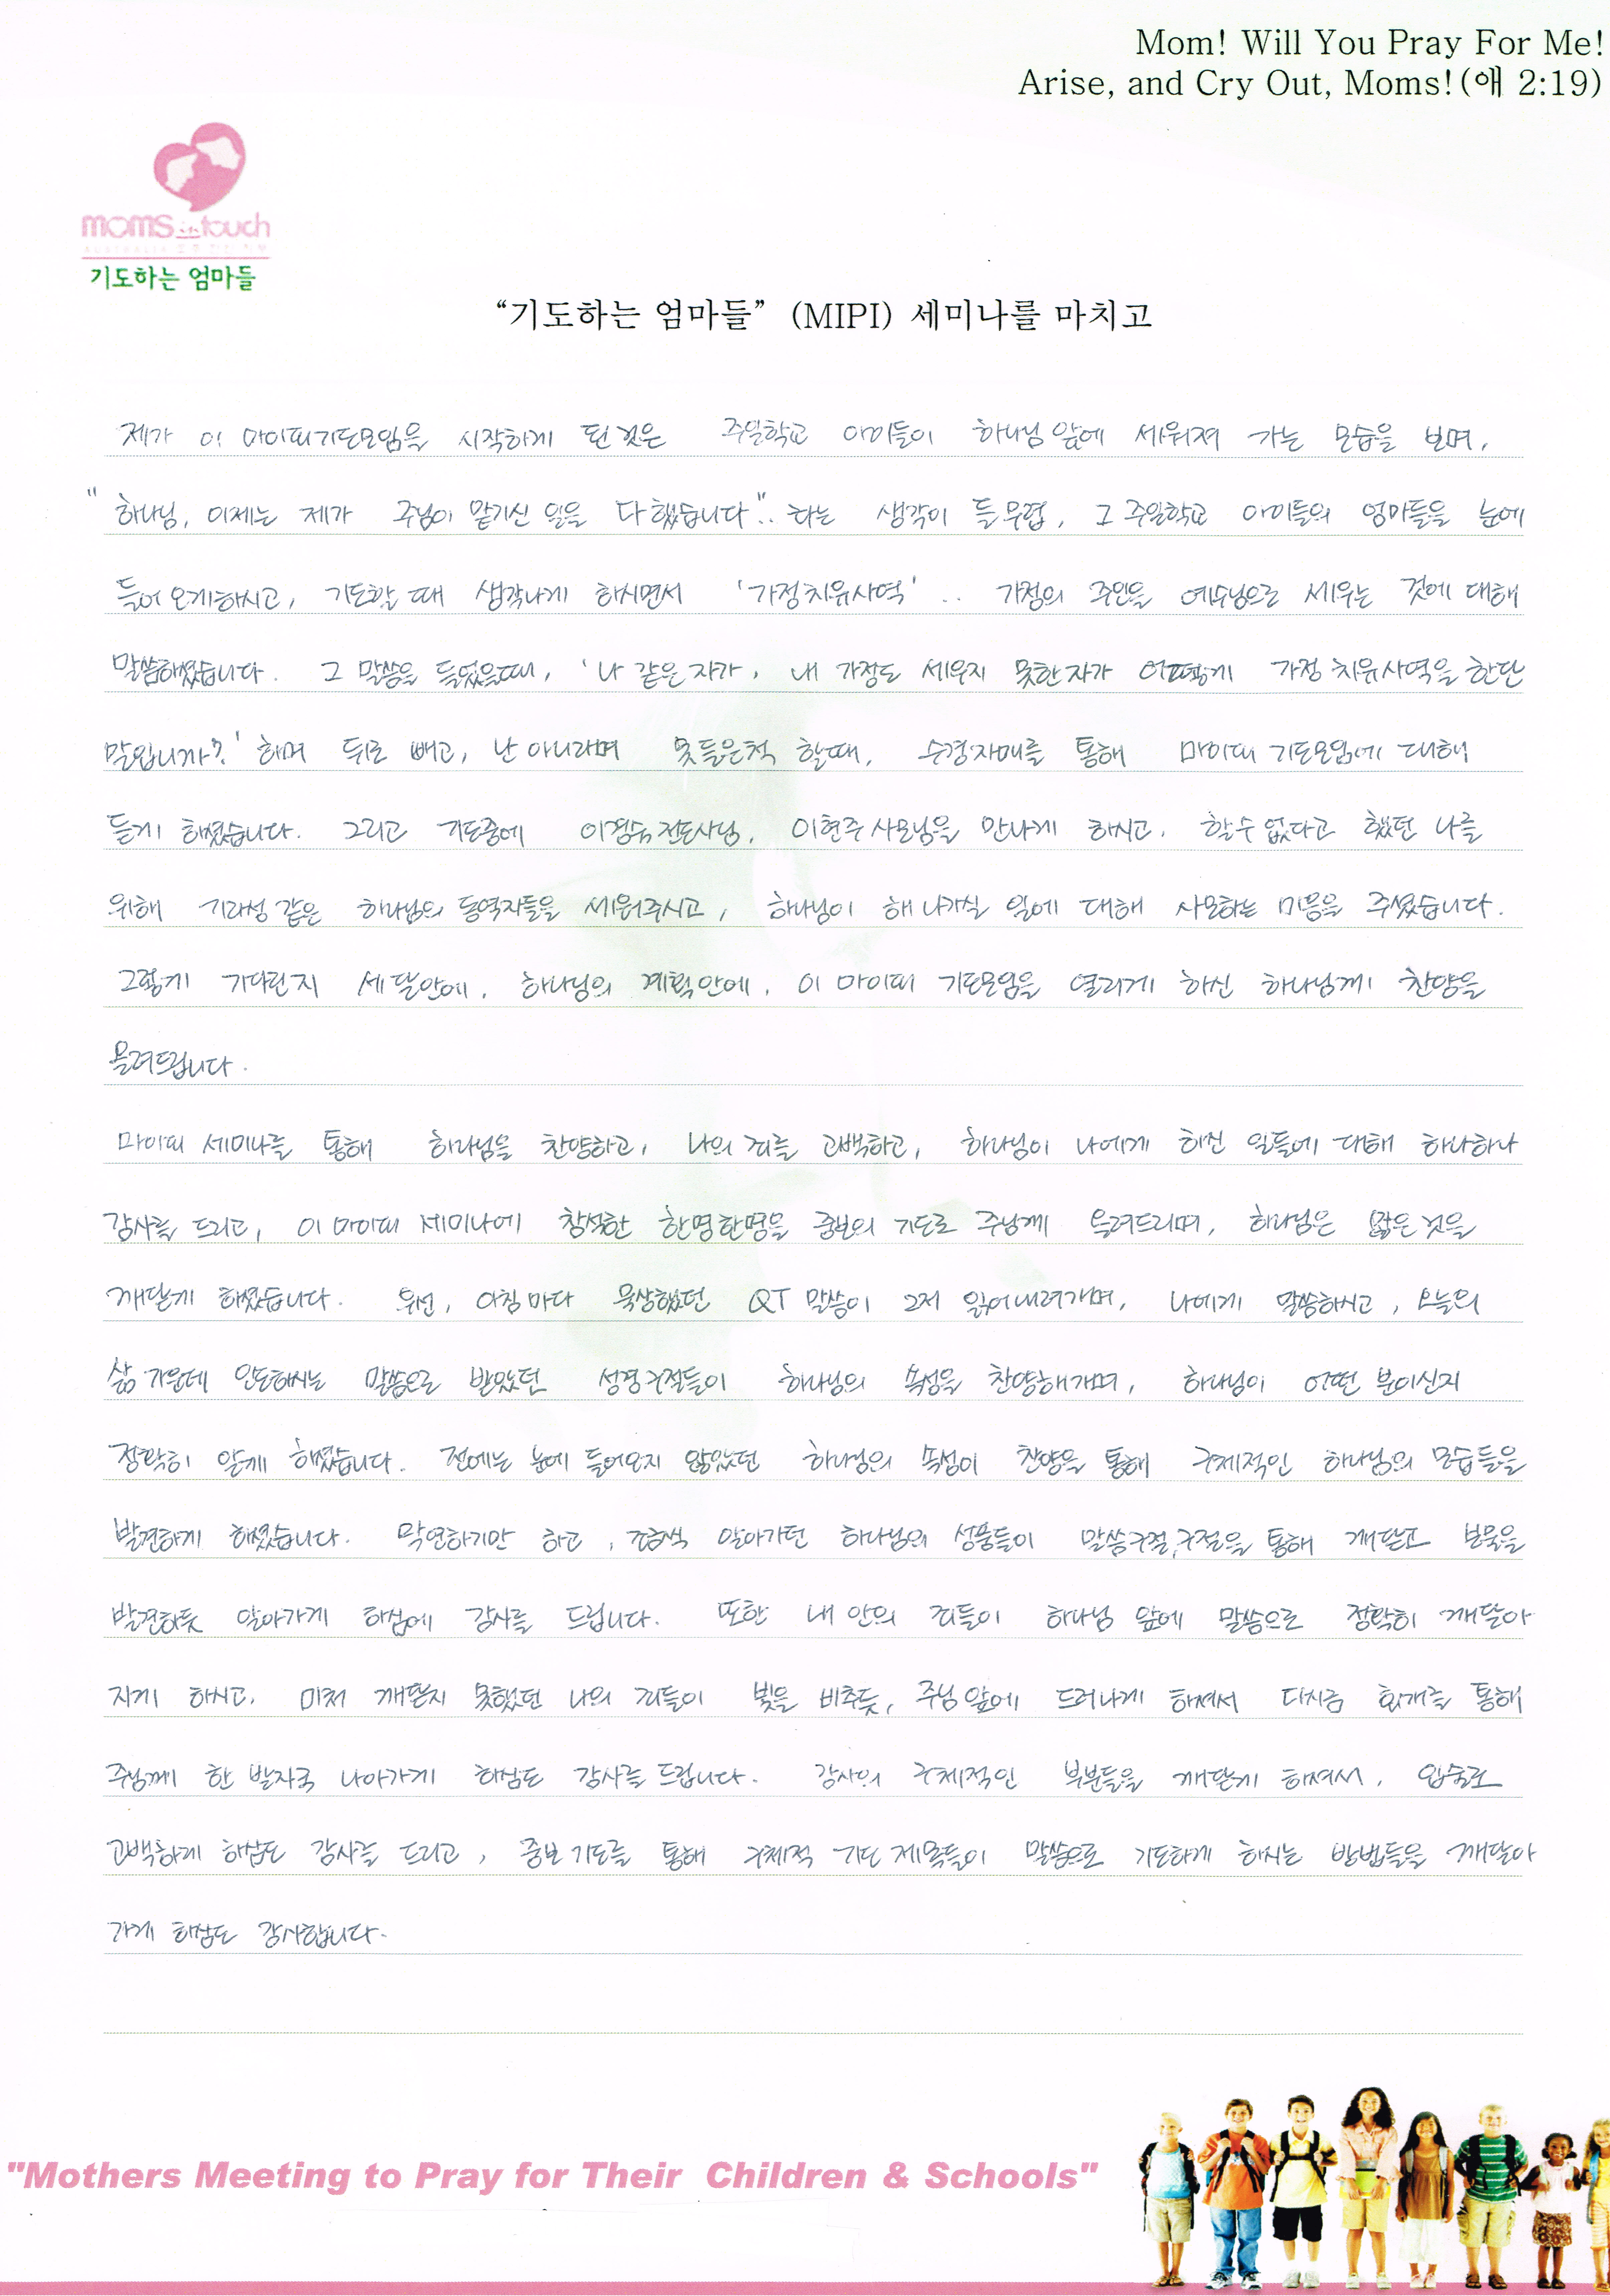 Mom! Will You Pray For Me!
Arise, and Cry Out, Moms!(애 2:19)
moms in touch
기도하는 엄마들
“기도하는 엄마들” (MIPI) 세미나를 마치고
제가 이 마이피기도모임을 시작하게 된것은 주일학교 아이들이 하나님 앞에 세워져 가는 모습을 보며,
" 하나님, 이제는 제가 주님이 맡기신 일을 다했습니다".. 라는 생각이 들무렵, 그 주일학교 아이들의 엄마들을 눈에
들어 오게하시고, 기도할 때 생각나게 하시면서 '가정치유사역' .. 가정의 주인을 예수님으로 세우는 것에 대해
말씀하셨습니다. 그 말씀을 들었을때, '나 같은 자가, 내 가정도 세우지 못한자가 어떻게 가정 치유사역을 한단
말입니까?' 하며 뒤로 빼고, 난 아니라며 못들은척 할때, 수경자매를 통해 마이피 기도모임에 대해
듣게 하셨습니다. 그리고 기도중에 전도사님, 이현주 사모님을 만나게 하시고, 할수 없다고 했던 나를
위해 기라성 같은 하나님의 동역자들을 세워주시고, 하나님이 해 나가실 일에 대해 사모하는 마음을 주셨습니다.
그렇게 기다린지 세 달안에, 하나님의 계획안에, 이 마이피 기도모임을 열리게 하신 하나님께 찬양을
올려드립니다.
마이피 세미나를 통해 하나님을 찬양하고, 나의 죄를 고백하고, 하나님이 나에게 하신 일들에 대해 하나하나
감사를 드리고, 이 마이피 세미나에 참석한 한명한명을 중보의 기도로 주님께 올려드리며, 하나님은 많은것을
깨닫게 하셨습니다. 우선, 아침마다 묵상했던 QT 말씀이 그저 읽어내려가며, 나에게 말씀하시고, 오늘의
삶 가운데 인도하시는 말씀으로 받았던 성경구절들이 하나님의 속성을 찬양해가며, 하나님이 어떤 분이신지
정확히 알게 하셨습니다. 전에는 눈에 들어오지 않았던 하나님의 속성이 찬양을 통해 구체적인 하나님의 모습들을
발견하게 하셨습니다. 막연하기만 하고, 조금씩 알아가던 하나님의 성품들이 말씀구절,구절을 통해 깨닫고 보물을
발견하듯 알아가게 하심에 감사를 드립니다. 또한 내 안의 죄들이 하나님 앞에 말씀으로 정확히 깨달아
지게 하시고, 미처 깨닫지 못했던 나의 죄들이 빛을 비추듯, 주님 앞에 드러나게 하셔서 다시금 회개를 통해
주님께 한 발자국 나아가게 하심도 감사를 드립니다. 감사의 구체적인 부분들을 깨닫게 하셔서, 입술로
고백하게 하심도 감사를 드리고, 중보 기도를 통해 구체적 기도 제목들이 말씀으로 기도하게 하시는 방법들을 깨달아
가게 하심도 감사합니다.
"Mothers Meeting to Pray for Their Children & Schools"